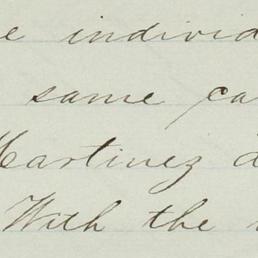 e individ
same ca
Martinez d
With the